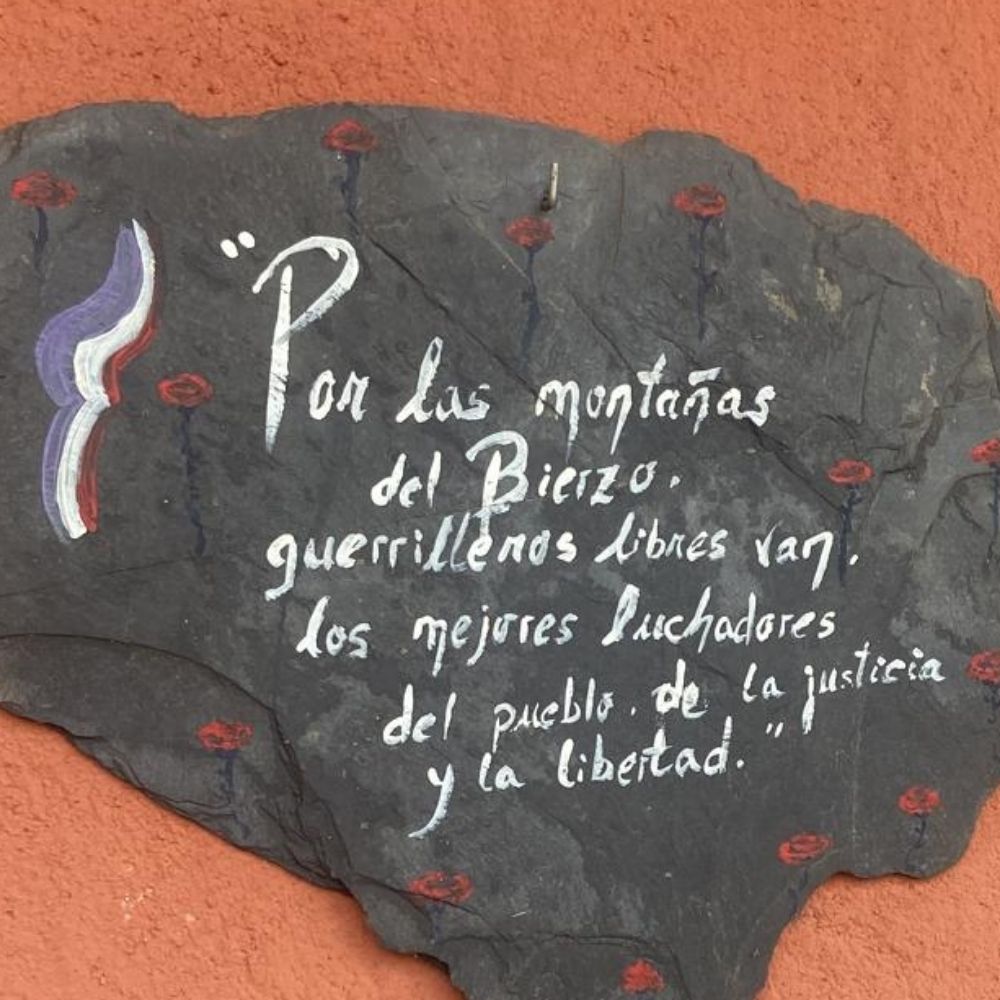 "Por las montañas
del Bierzo.
guerrilleros libres van.
los mejores luchadores
del pueblo. de la justicia
y la libertad."